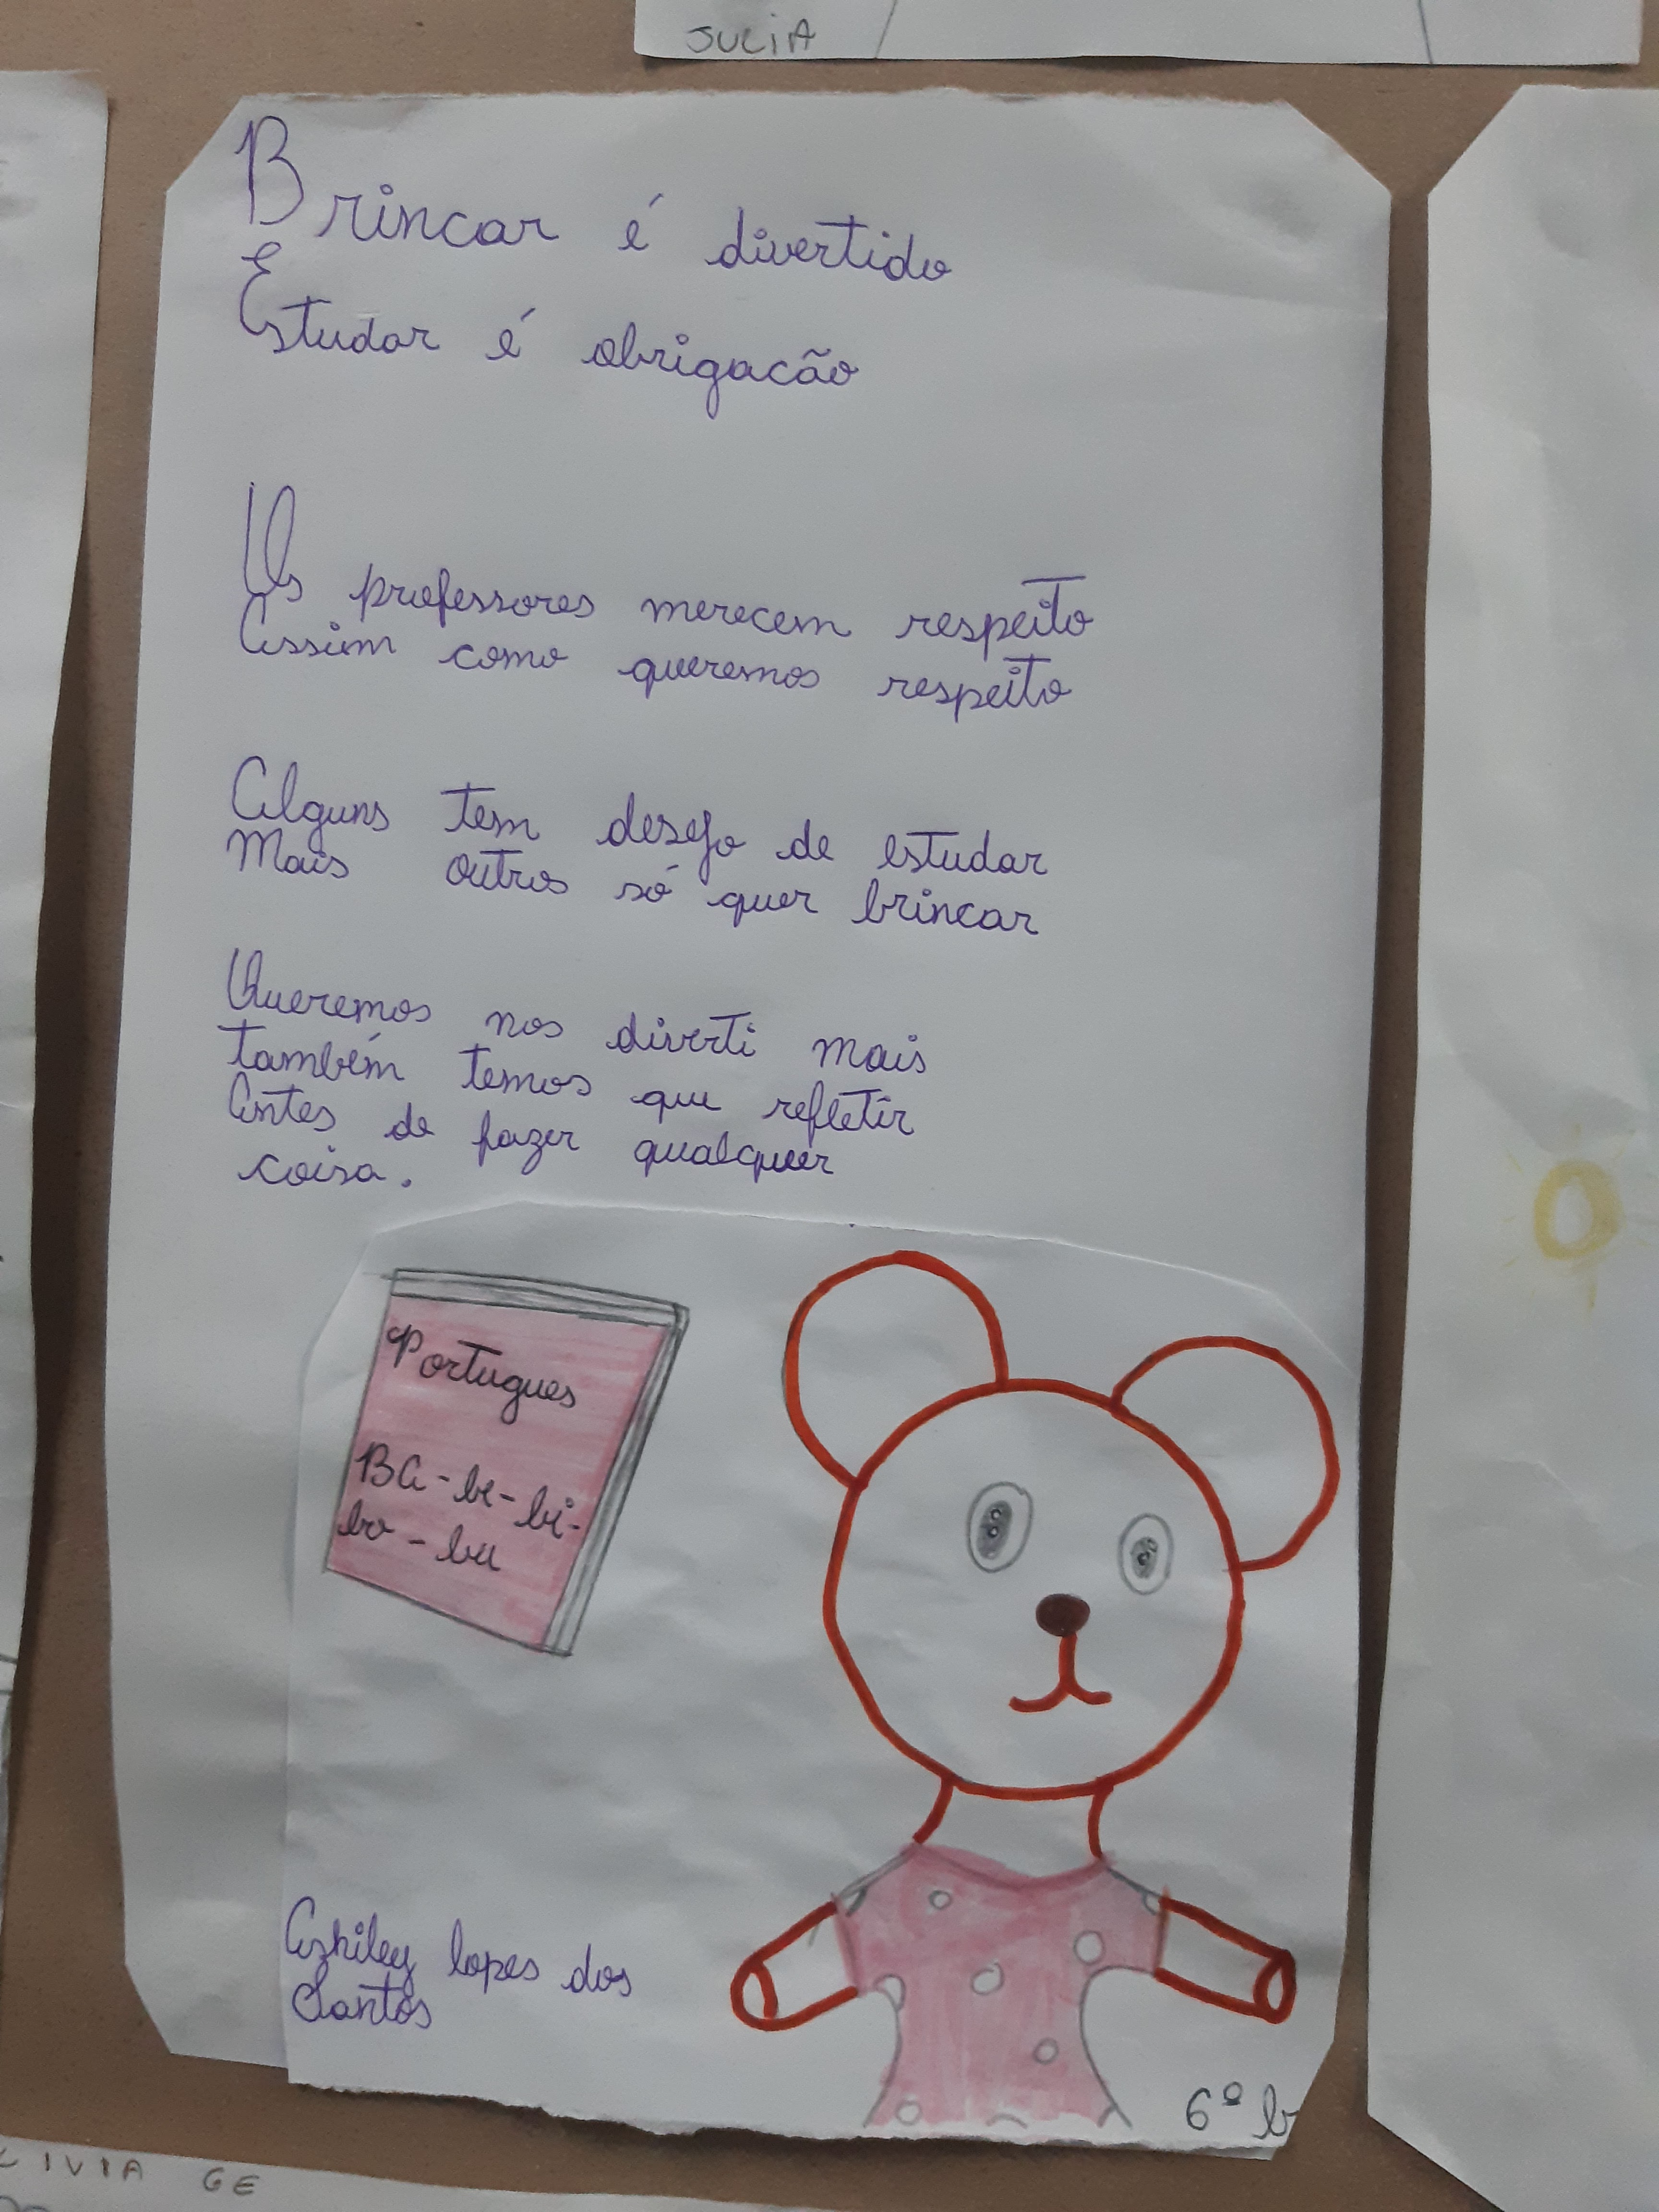 JULIA
Brincar é divertido
Estudar é obrigacão
Os professores merecem respeito
Assim como queremos respeito
Alguns tem desejo de estudar
Mais outros só quer brincar
Queremos nos diverti mais
também temos que refletir
Antes de fazer qualquer
coisa.
Portugues
BA-be-bi-
bo-bu
Azhiley lopes dos
Santos
6º b
LIVIA GE